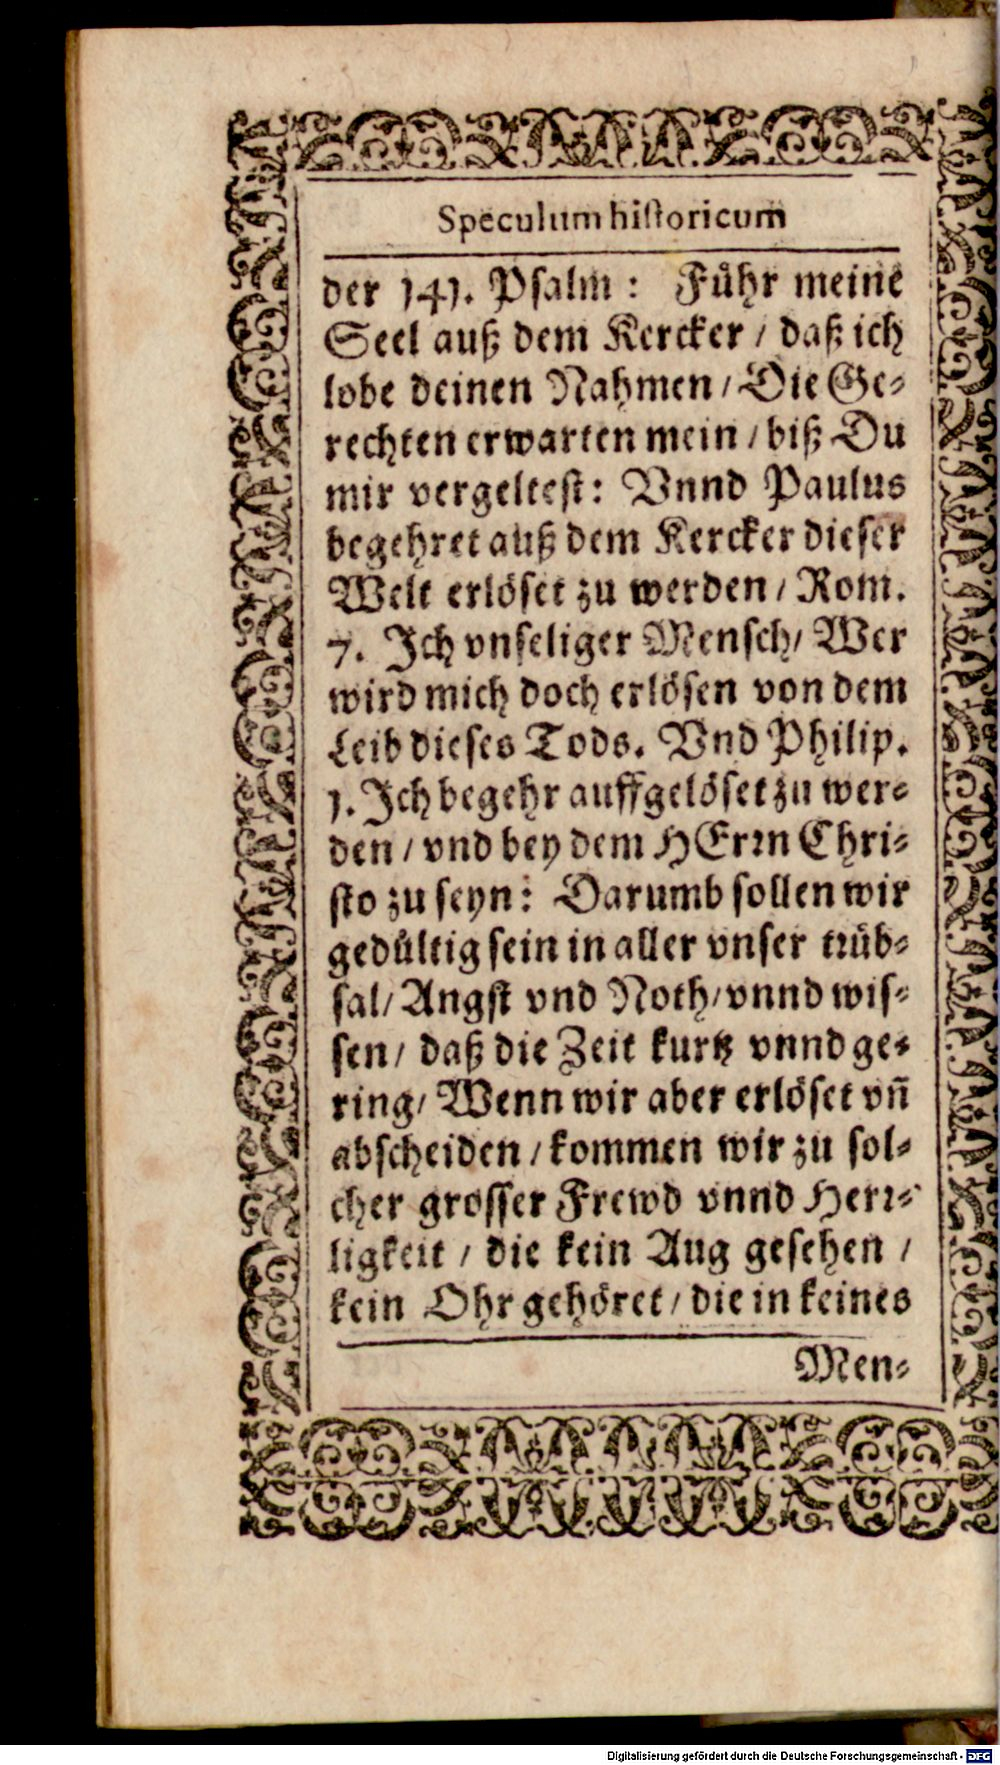 Speculum historicum
der 141. Psalm: Führ meine
Seel auß dem Kercker / daß ich
lobe deinen Nahmen / Die Ge-
rechten erwarten mein / biß Du
mir vergeltest: Vnnd Paulus
begehret auß dem Kercker dieser
Welt erlöset zu werden / Rom.
7. Jch vnseliger Mensch/ Wer
wird mich doch erlösen von dem
Leib dieses Tods. Vnd Philip.
1. Jch begehr auffgelöset zu wer-
den / vnd bey dem HErꝛn Chri-
sto zu seyn: Darumb sollen wir
gedültig sein in aller vnser trüb-
sal/ Angst vnd Noth/ vnnd wis-
sen / daß die Zeit kurtz vnnd ge-
ring/ Wenn wir aber erlöset vn̄
abscheiden / kommen wir zu sol-
cher grosser Frewd vnnd Herꝛ-
ligkeit / die kein Aug gesehen /
kein Ohr gehöret / die in keines
Men-
Digitalisierung gefördert durch die Deutsche Forschungsgemeinschaft - DFG